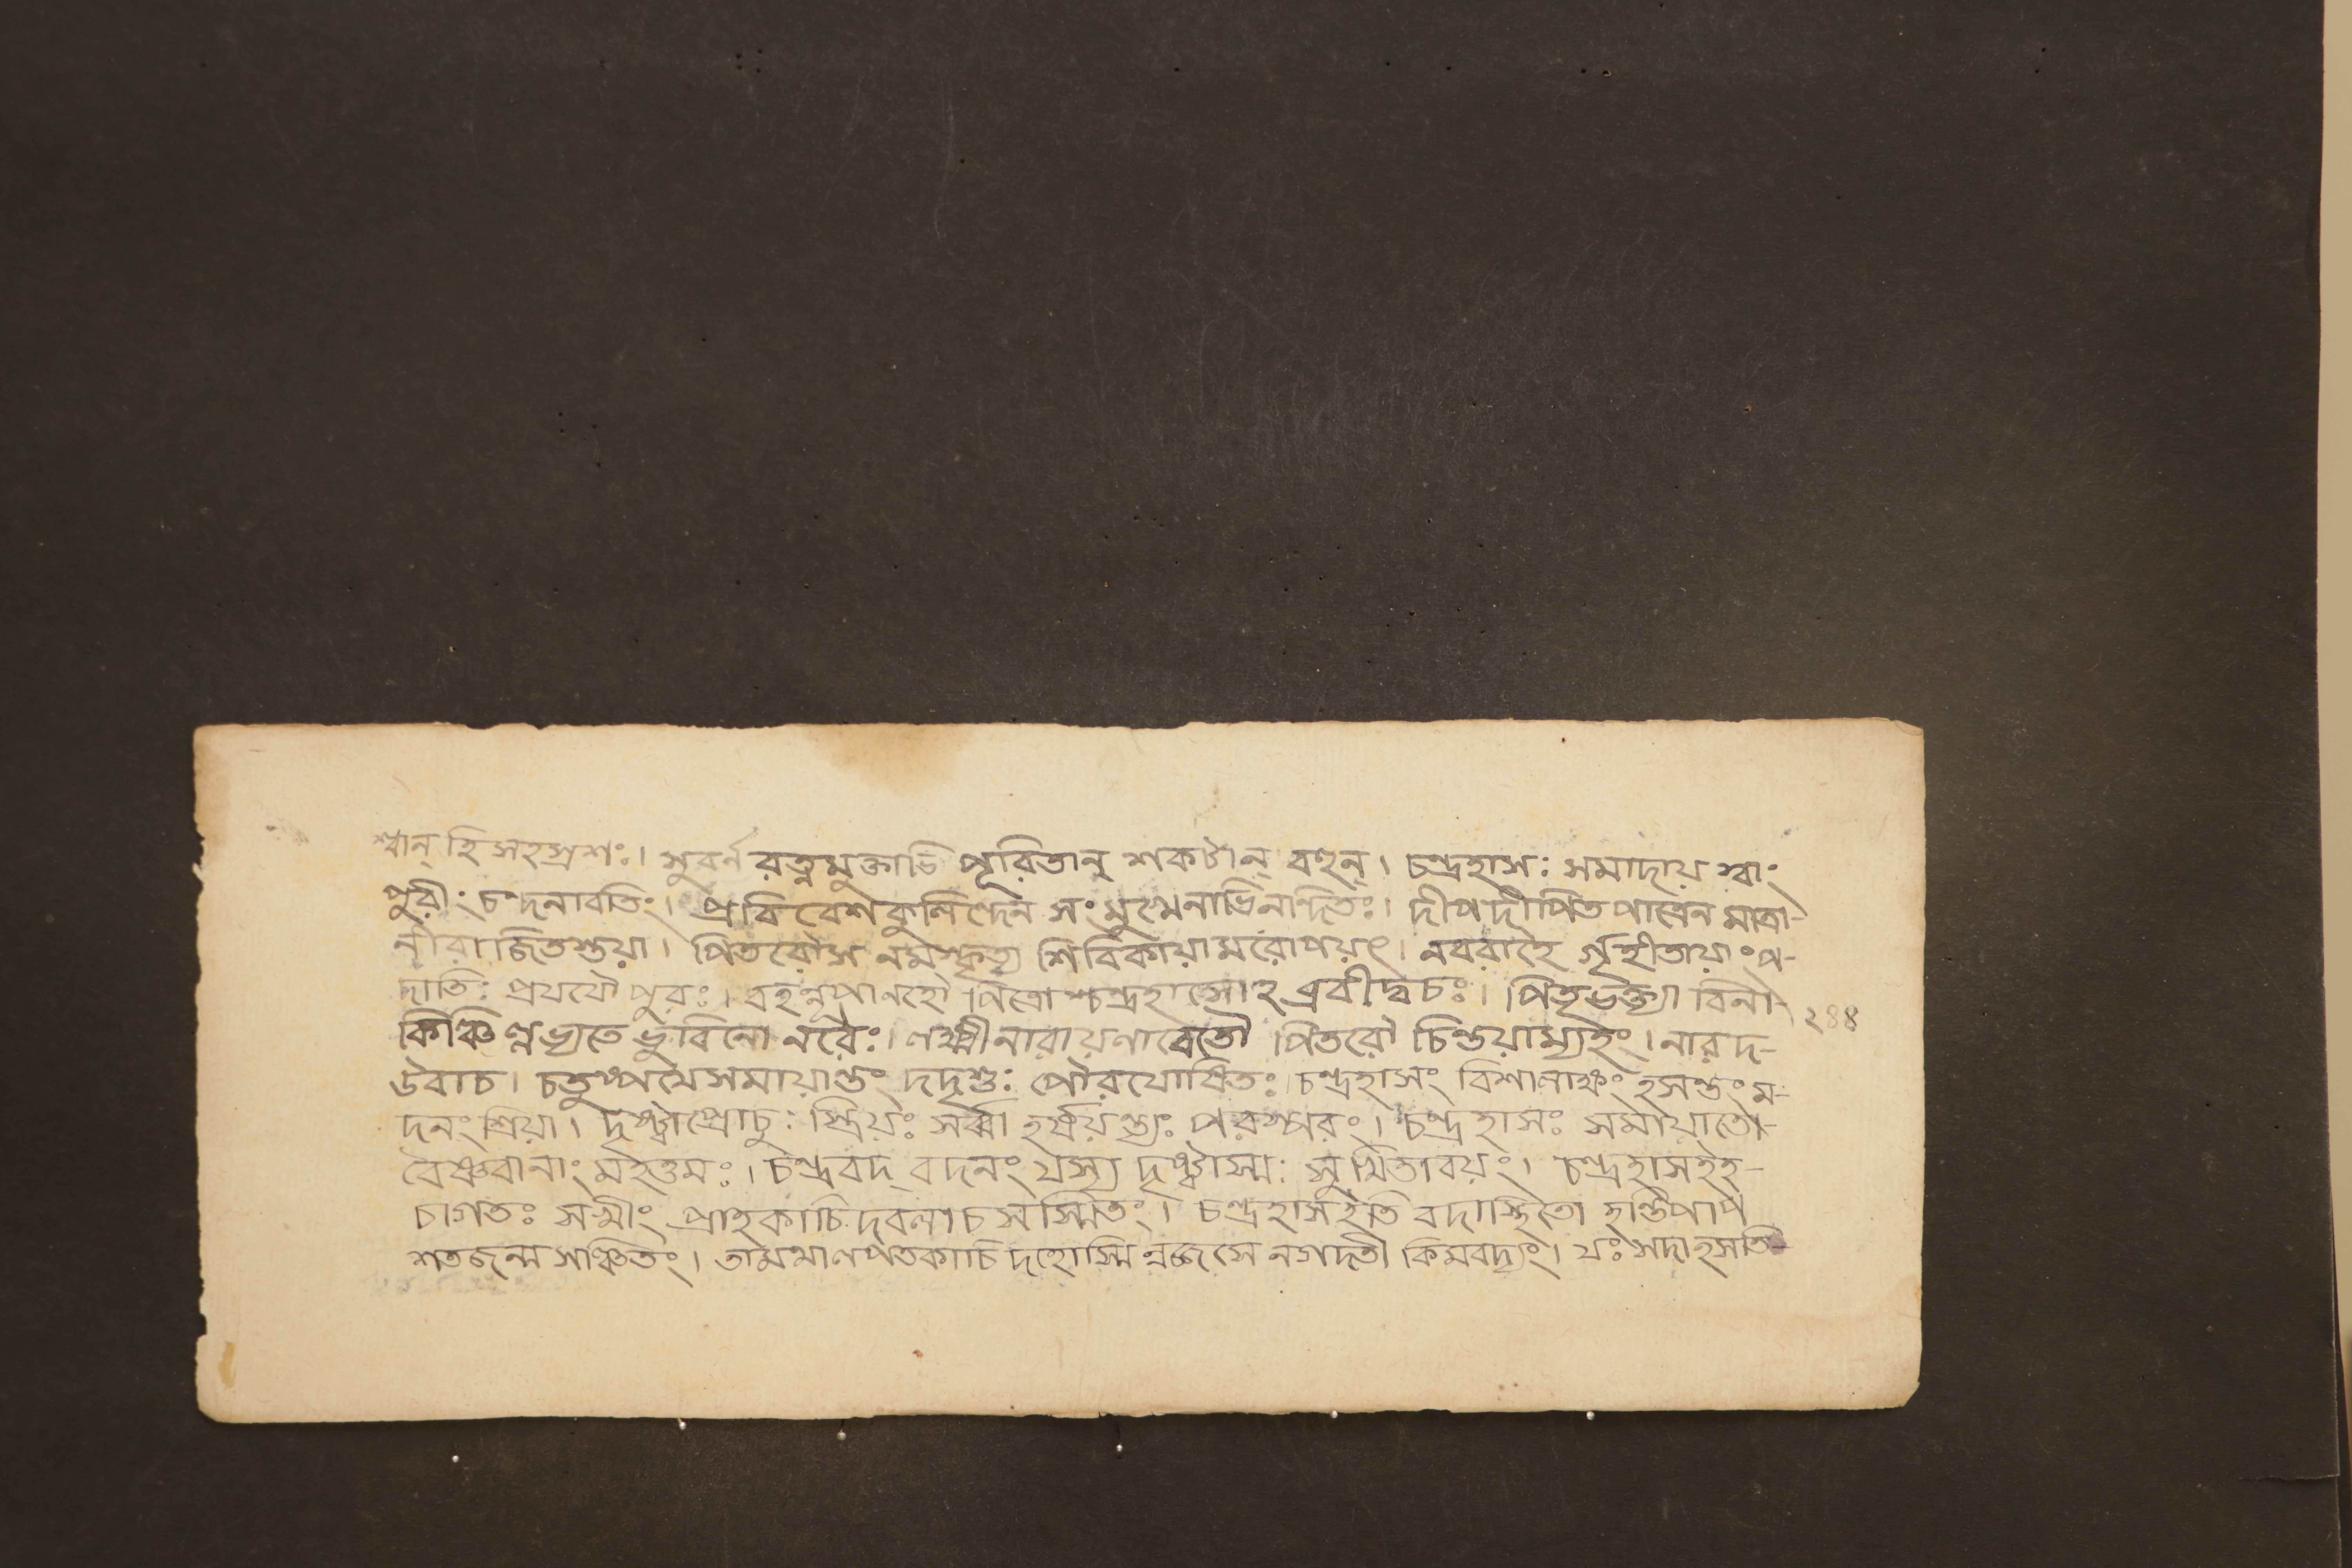 শ্বান্ হি সহস্রশঃ। সুবর্ন রত্নমুক্তাভি পূরিতান্ শকটান্ বহুন্। চন্দ্রহাসঃ সমাদায় স্বাং
পুরীং চন্দনাবতিং। প্রবিবেশ কুলিন্দেন সংমুখেনাভিনন্দিতঃ। দীপদীপিত পাত্রেন মাত্রা-
নীরাজিতশুয়া। পিতরৌস নমস্কৃত্য শিবিকায়ামরোপয়ৎ। নববাহৈ র্গৃহীতায়াং প-
দাতিঃ প্রযযৌ পুরঃ। বহন্নূপানহৌ পিত্রোশ্চন্দ্রহাসোহব্রবীদ্বচঃ। পিতৃভক্ত্যা বিনা-
কিঞ্চিল্লভ্যতে ভুবিনো নরৈঃ। লক্ষ্মীনারায়ণাবেতৌ পিতরৌ চিন্তয়াম্যহং। নারদ-
উবাচ। চতুষ্পথেসমায়ান্তং দদৃশুঃ পৌরযোষিতঃ। চন্দ্রহাসং বিশালাক্ষং হসন্তং ম-
দনং শ্রিয়া। দৃষ্ট্বাপ্রোচুঃ স্ত্রিয়ঃ সর্ব্বা হর্ষয়ন্ত্যঃ পরস্পরং। চন্দ্রহাসঃ সমায়াতো-
বৈষ্ণবানাং মহত্তমঃ। চন্দ্রবদ্ বদনং যস্য দৃষ্ট্বাস্মঃ সুখিতাবয়ং। চন্দ্রহাসইহ-
চাগতঃ সখীং প্রাহকাচিদবলা চ সস্মিতং। চন্দ্রহাসইতি বদাস্থিতো হন্তিপাপ
শতজন্ম সঞ্চিতং। তামথালপতকাচিদহোস্মি ন্নজ্জসে নগদতী কিমবদ্যং। যঃ সদাহসতি-
২৪৪